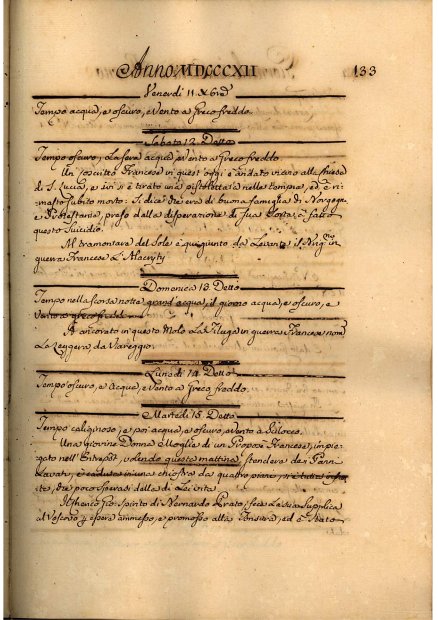 Anno MDCCCXII 133
Venerdi 11 Xbre
Tempo acqua, e oscuro, e Vento a Greco freddo.
Sabato 12 Detto
Tempo oscuro, La sera acqua, e Vento a Greco freddo
Un Francese in quest'oggi è andato vicino alla chiesa
di S. Lucia, e ivi si è tirato una pistolettata nelle tempia, ed è ri=
masto subito morto: S. dice era di buona famiglia di
e preso dalla disperazione di sua sorte, à fatto
questo Suicidio.
Al tramontare del Sole è qui giunto da Levante il in
guerra Francese
Domenica 13 Detto
Tempo nella scorsa notte grand'acqua, il giorno acqua, e oscuro, e
Vento a greco freddo
È ancorato in questo Molo La in guerra Francese nom.
La Leggera, da Viareggio.
Lunedi 14 Detto
Tempo oscuro, e Acqua, e Vento a Greco freddo.
Martedi 15 Detto
Tempo caliginoso, e poi acqua, e oscuro, e Vento a Scilocco.
Una giovine Donna Moglie di un Francese, impie=
gato nell'Entrepôt, volendo questa mattina stendere de' Panni
Lavati, è caduta in una chiostra da quattro piani, si è tutta
, che poco sperasi della di Lei vita
Il chierico Gio: Spirito di Bernardo Prato, fece La sua Supplica
al Vescovo p. essere ammesso, e promosso alla Tonsura, ed è stato